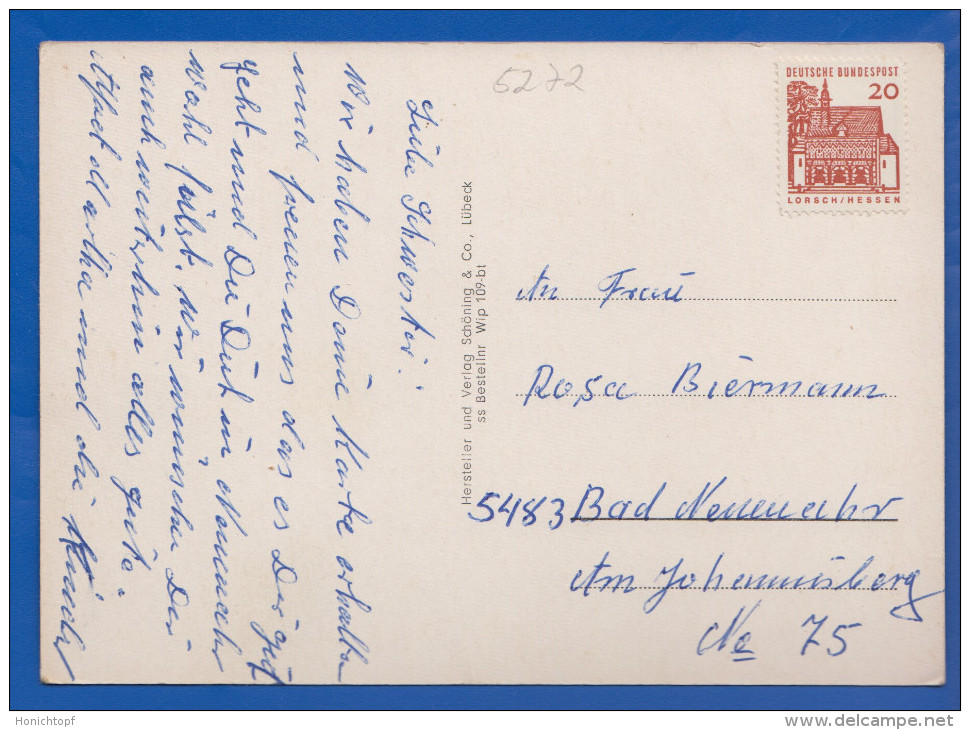 5272
DEUTSCHE BUNDESPOST
20
LORSCH/HESSEN
Liebe Schwester!
Wir haben Deine Karte erhalten
und freuen uns das es Dir gut
geht und Du Dich in
wohl fülst. Wir wünschen Dir
auch weiterhin alles gute.
und die Kinder
Hersteller und Verlag Schöning & Co., Lübeck
ss Bestellnr Wip 109-bt
An Frau
Rosa Biermann
5483 Bad Neuenahr
Am Johannisberg
No 75
Honichtopf
www.delcampe.net